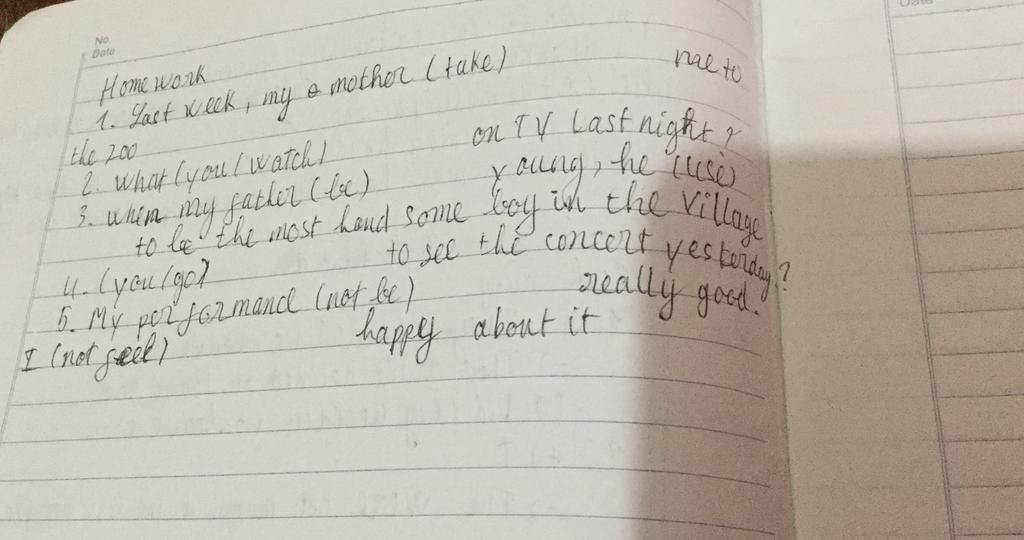 No.
Date
Date
Homework
1. Last week, my mother (take) me to
the zoo
2. What (you / watch) on TV Last night ?
3. when my father (be) young, he (use)
to be the most hand some boy in the village
4. (you / go) to see the concert yesterday ?
5. My performance (not be) really good.
I (not feel) happy about it